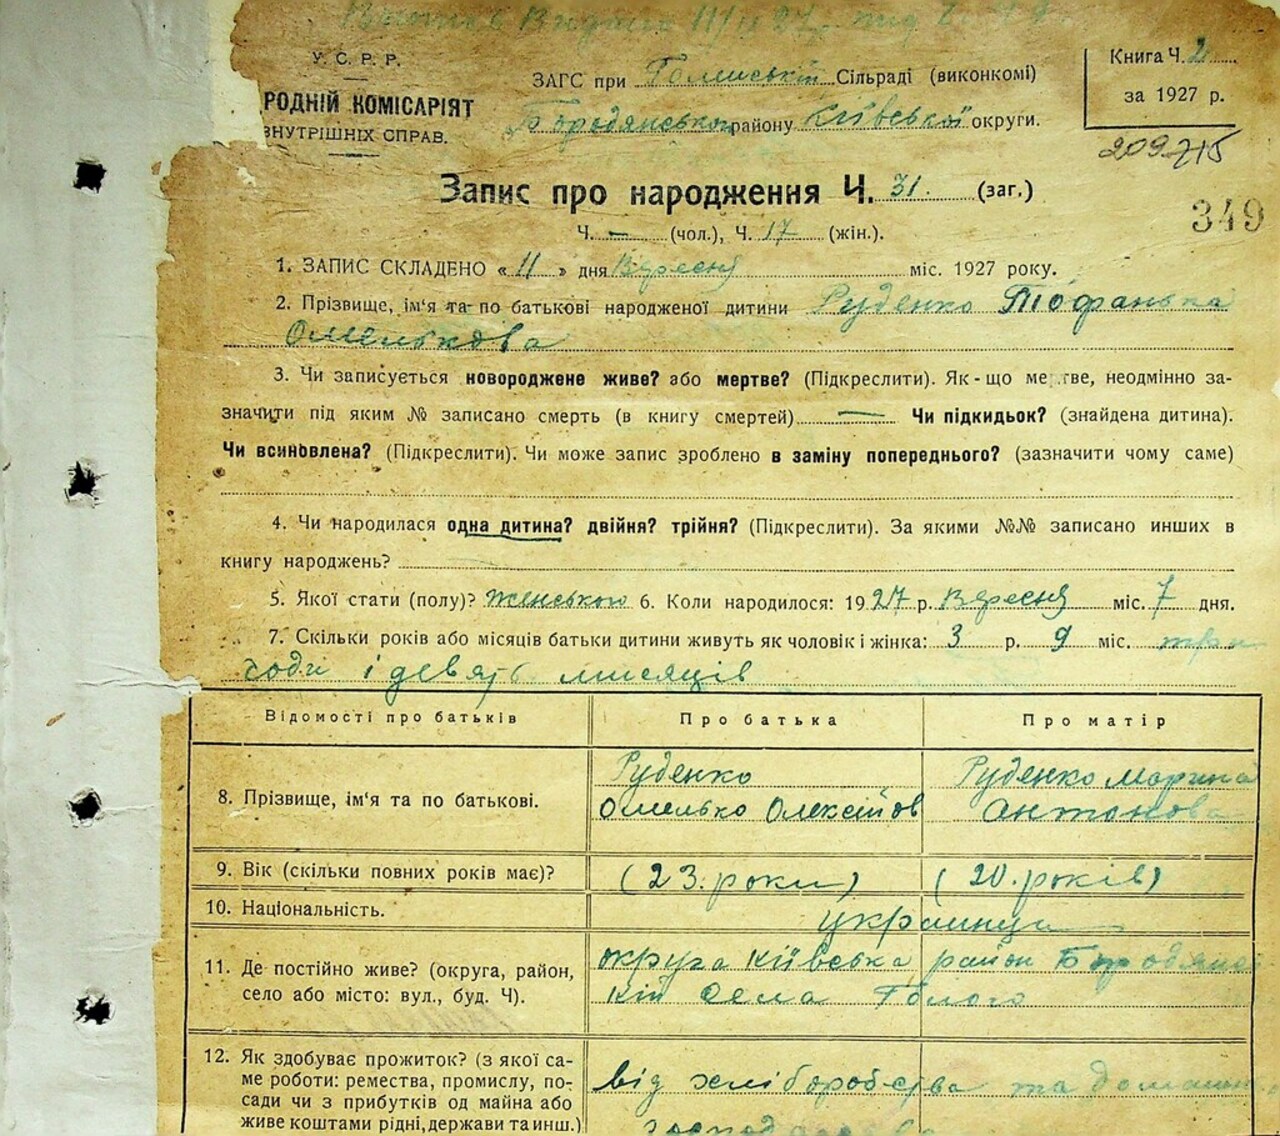 У. С. Р. Р.
РОДНІЙ КОМІСАРІЯТ
ВНУТРІШНІХ СПРАВ.
ЗАГС при Сільраді (виконкомі)
Бородянського району Київської округи.
Книга Ч. 2
за 1927 р.
209715
349
Запис про народження Ч. 31. (заг.)
Ч. — (чол.), Ч. 17 (жін.).
1. ЗАПИС СКЛАДЕНО « 11 » дня Вересня міс. 1927 року.
2. Прізвище, ім'я та по батькові народженої дитини Руденко
Омелькова
3. Чи записується новороджене живе? або мертве? (Підкреслити). Як-що мертве, неодмінно за-
значити під яким № записано смерть (в книгу смертей) — Чи підкидьок? (знайдена дитина).
Чи всиновлена? (Підкреслити). Чи може запис зроблено в заміну попереднього? (зазначити чому саме)
4. Чи народилася одна дитина? двійня? трійня? (Підкреслити). За якими №№ записано инших в
книгу народжень?
5. Якої стати (полу)? Женського 6. Коли народилося: 1927 р. Вересня міс. 7 дня.
7. Скільки років або місяців батьки дитини живуть як чоловік і жінка: 3 р. 9 міс. три
годи і девять мисяців
Відомості про батьків Про батька Про матір
8. Прізвище, ім'я та по батькові. Руденко Омелько Олексійов Руденко Марина Антонова
9. Вік (скільки повних років має)? (23. роки) (20. років)
10. Національність. украинци
11. Де постійно живе? (округа, район, село або місто: вул., буд. Ч). округа Київська район Бородянс
кий села
12. Як здобуває прожиток? (з якої са-
ме роботи: ремества, промислу, по-
сади чи з прибутків од майна або
живе коштами рідні, держави та инш.)
від хліборобства та